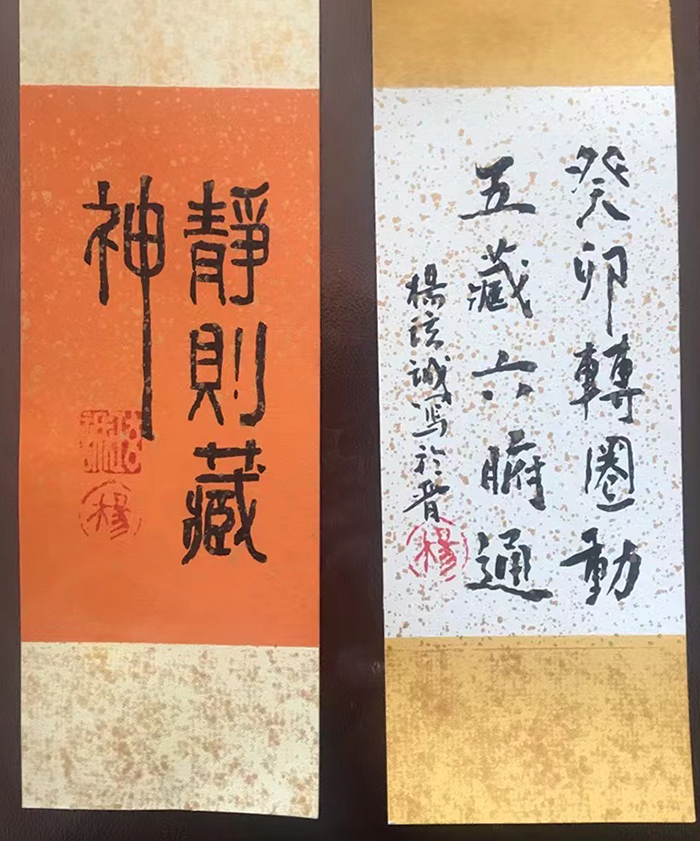 靜則藏
神
癸卯轉圈動
五藏六腑通
楊弦誠写於晋
楊
楊